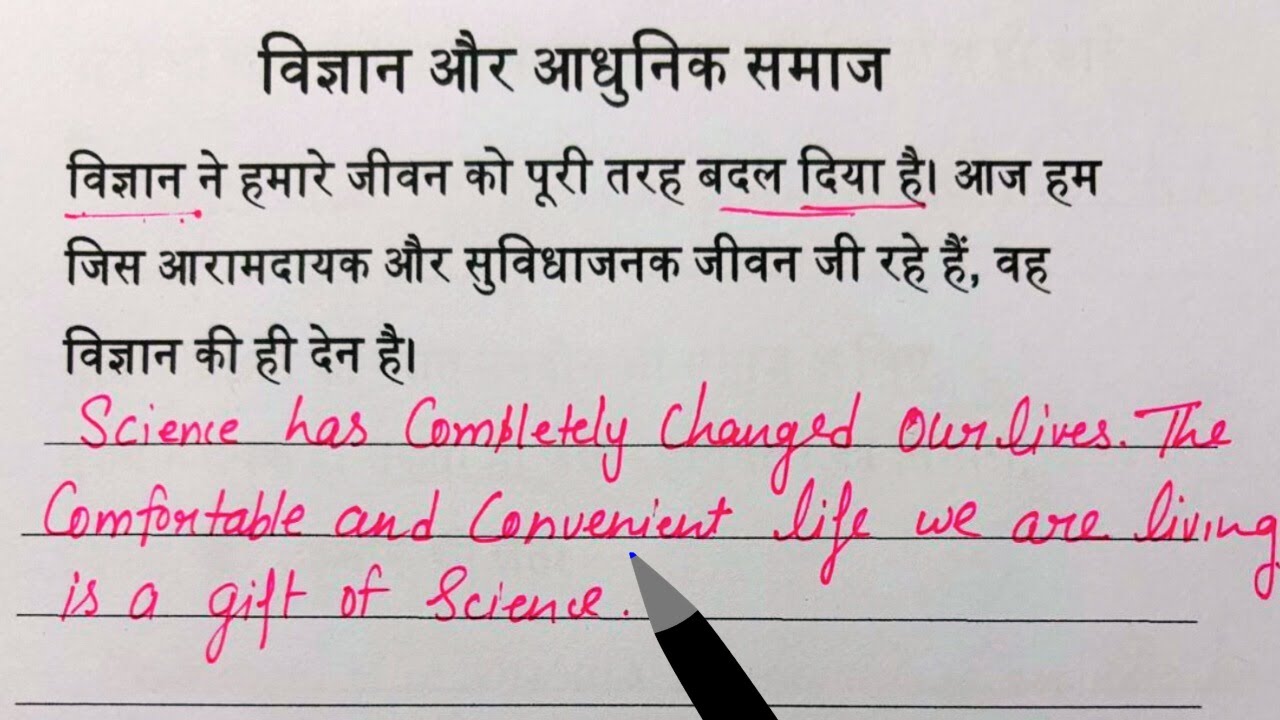 विज्ञान और आधुनिक समाज
विज्ञान ने हमारे जीवन को पूरी तरह बदल दिया है। आज हम
जिस आरामदायक और सुविधाजनक जीवन जी रहे हैं, वह
विज्ञान की ही देन है।
Science has Completely Changed Our lives. The
Comfortable and Convenient life we are living
is a gift of Science.